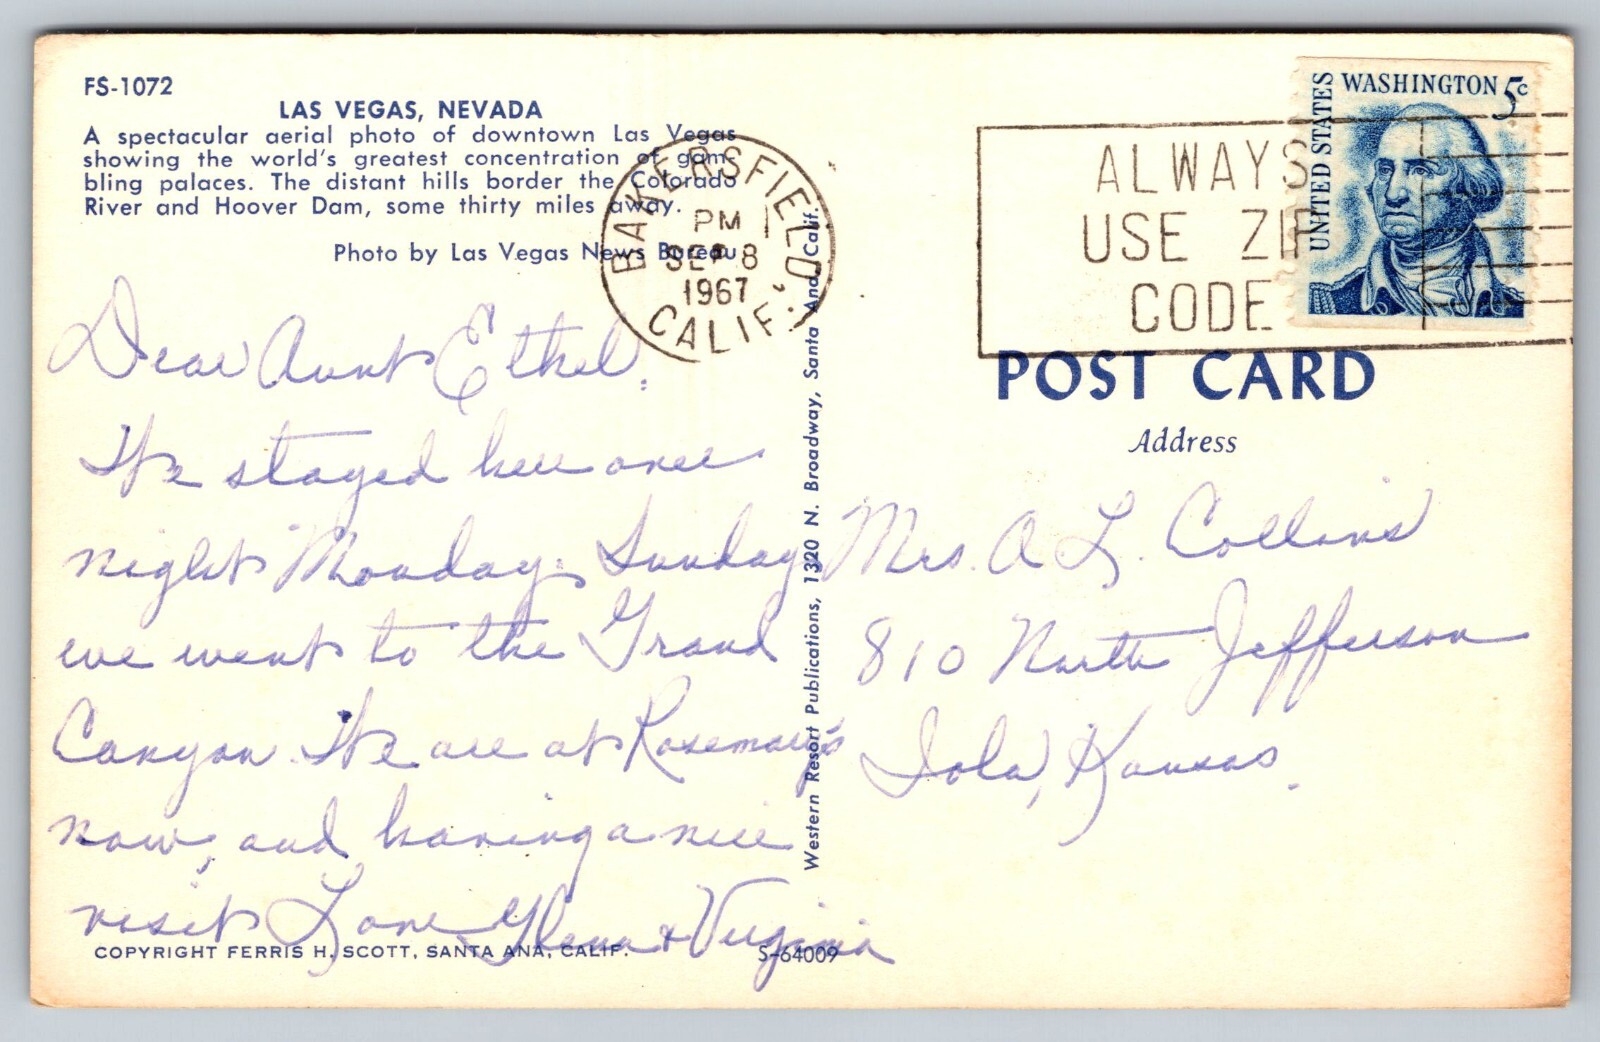 FS-1072
LAS VEGAS, NEVADA
A spectacular aerial photo of downtown Las Vegas
showing the world's greatest concentration of gam-
bling palaces. The distant hills border the Colorado
River and Hoover Dam, some thirty miles away.
Photo by Las Vegas News Bureau
BAKERSFIELD,
PM
SEP 8
1967
CALIF.
ALWAYS
USE ZIP
CODE
UNITED STATES
WASHINGTON 5c
POST CARD
Address
Dear Aunt Ethel.
We stayed here over
night Monday. Sunday
we went to the Grand
Canyon. We are at Rosemary's
now, and having a nice
visit Love Glenn & Virginia
Mrs. A L. Collins
810 North Jefferson
Iola, Kansas.
Western Resort Publications, 1320 N. Broadway, Santa Ana, Calif.
COPYRIGHT FERRIS H. SCOTT, SANTA ANA, CALIF.
S-64009